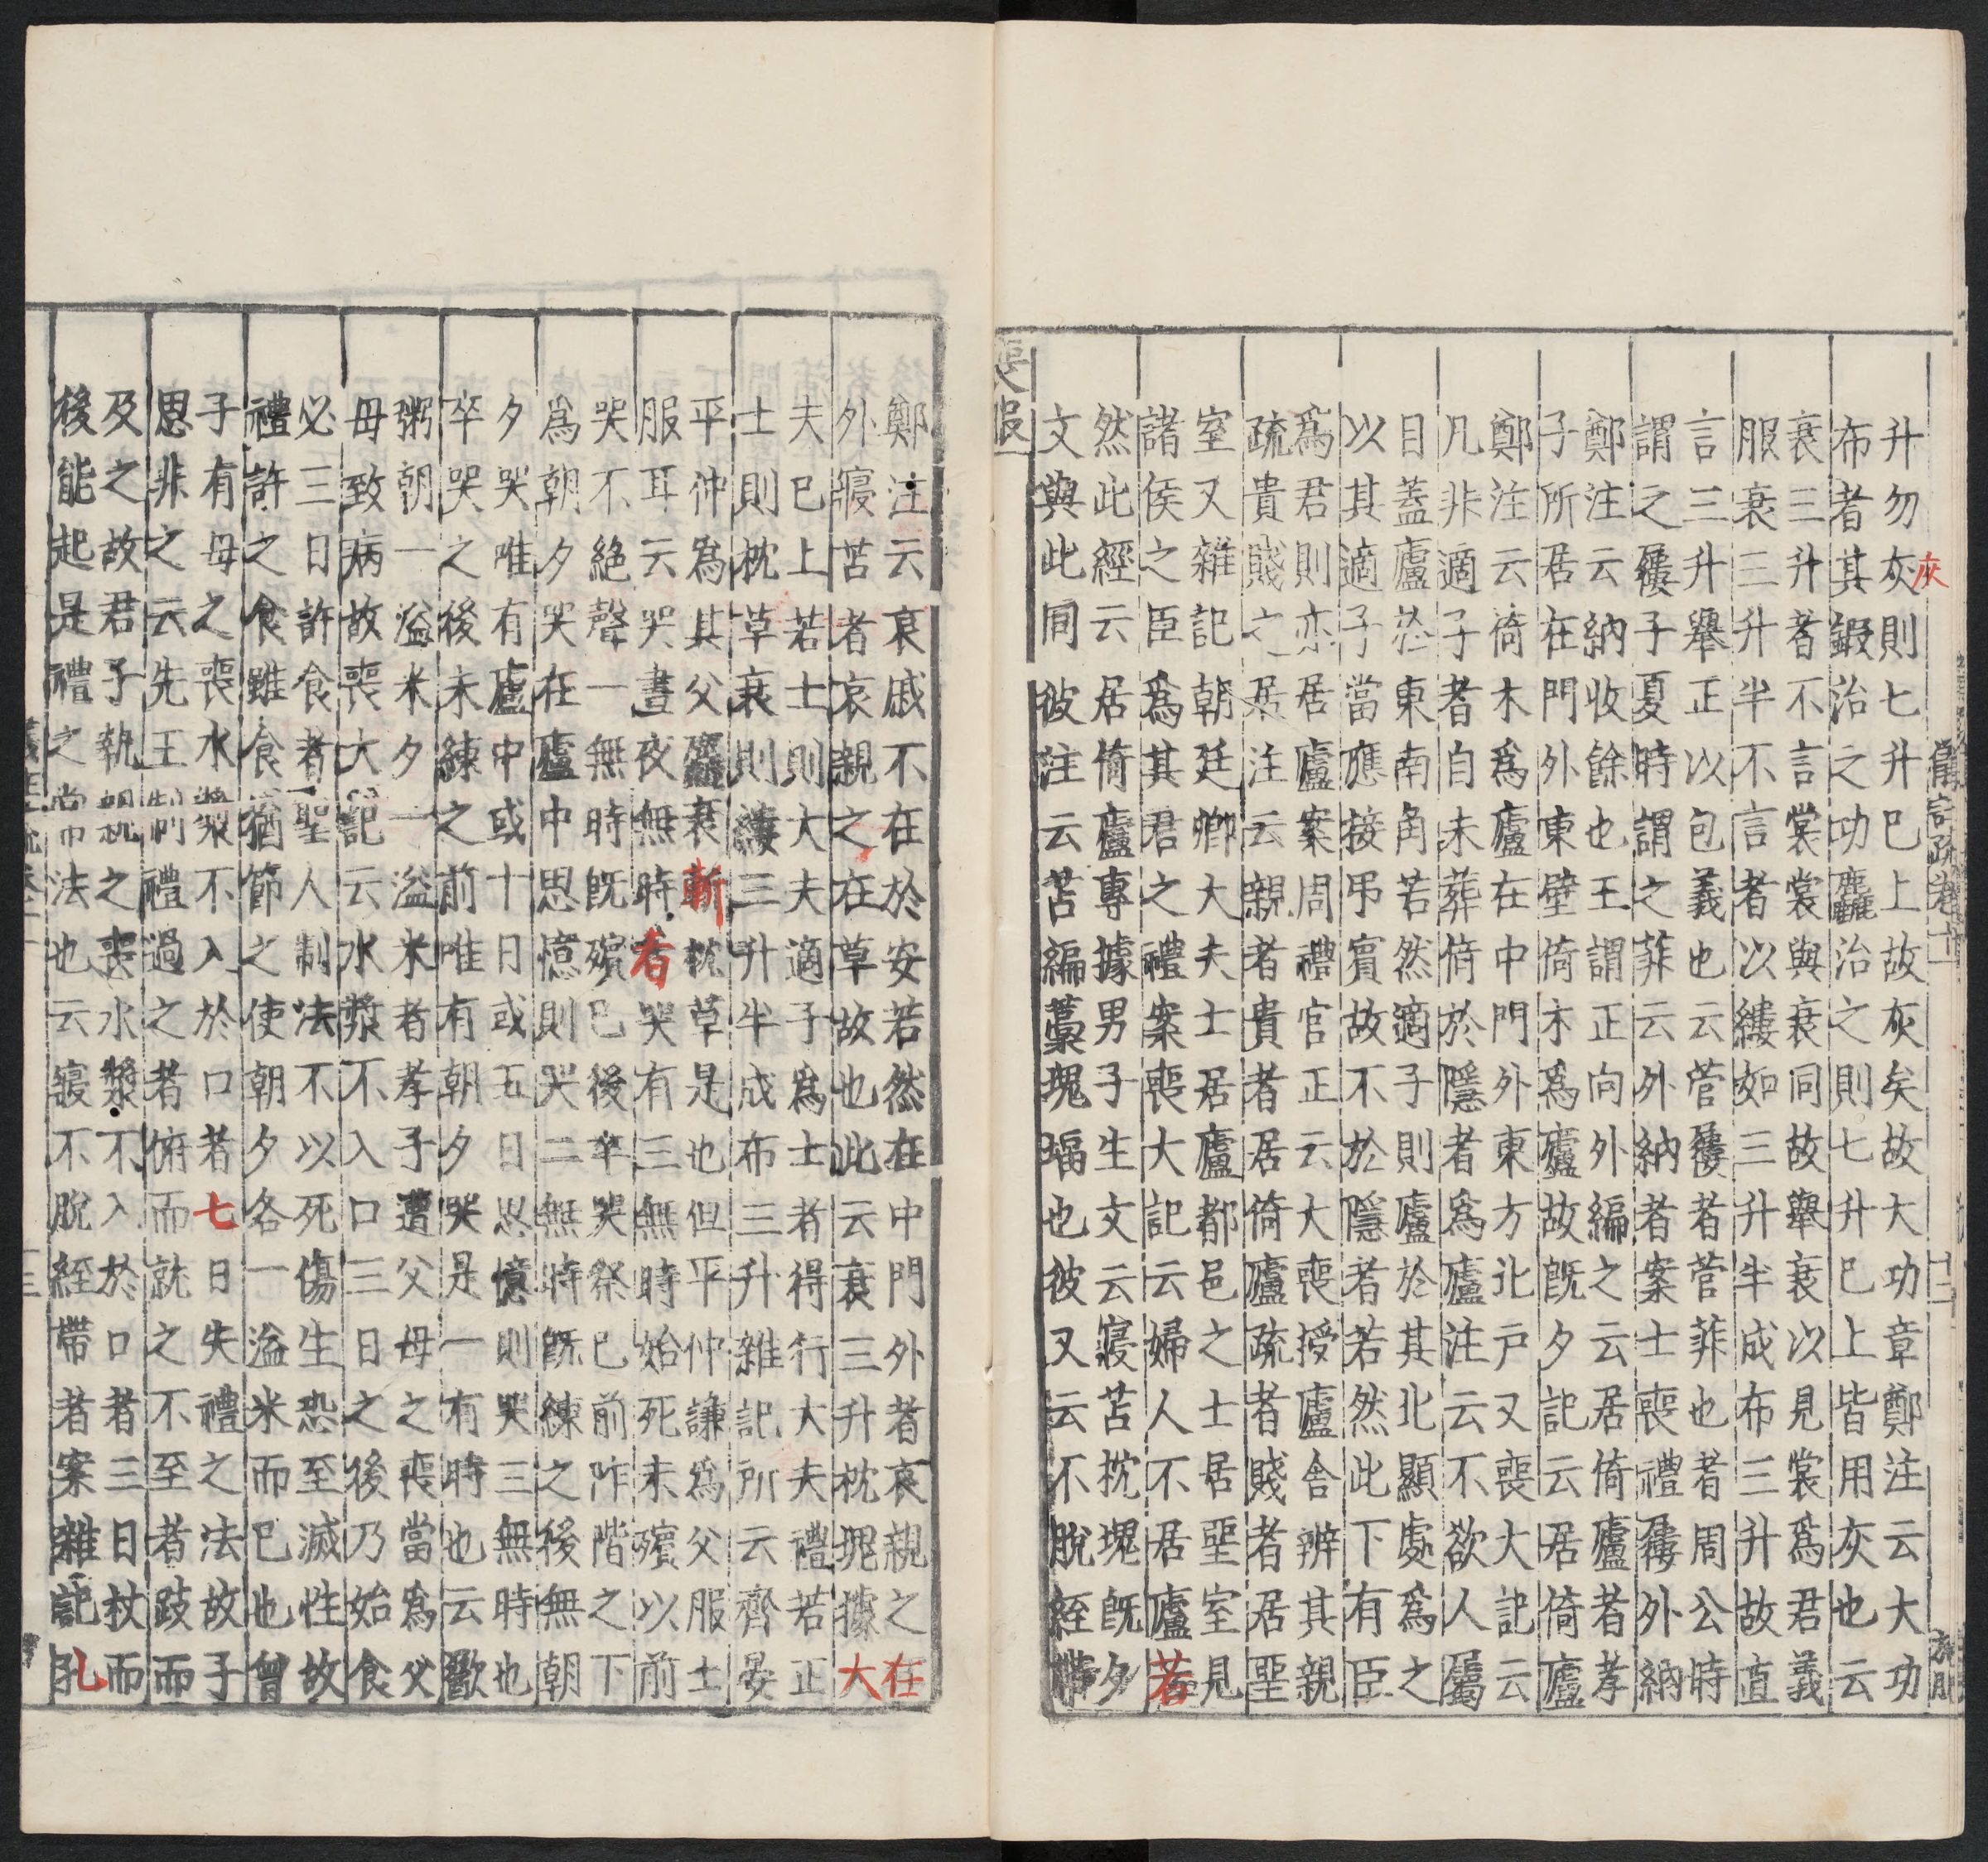 升勿灰則七升已上故灰矣故大功章鄭注云大功
布者其鍛治之功麤治之則七升已上皆用灰也云
衰三升者不言裳裳與衰同故舉衰以見裳爲君義
服衰三升半不言者以縷如三升半成布三升故直
言三升舉正以包義也云菅屨者菅菲也者周公時
謂之屨子夏時謂之菲云外納者案士喪禮屨外納
鄭注云納收餘也王謂正向外編之云居倚廬者孝
子所居在門外東壁倚木爲廬故旣夕記云居倚廬
鄭注云倚木爲廬在中門外東方北户又喪大記云
凡非適子者自未葬倚於隱者爲廬注云不欲人屬
目蓋廬恐東南角若然適子則廬於其北顯處爲之
以其適子當應接弔賓故不於隱者若然此下有臣
爲君則亦居廬案周禮官正云大喪授廬舍辨其親
疏貴賤之居注云親者貴者居倚廬疏者賤者居堊
室又雜記朝廷卿大夫士居廬都邑之士居堊室見
諸侯之臣爲其君之禮案喪大記云婦人不居廬若
然此經云居倚廬專據男子生文云寢苫枕塊旣夕
文與此同彼注云苫編藁塊堛也彼又云不脫絰帶
鄭注云哀戚不在於安若然在中門外者哀親之在
外寢苫者哀親之在草故也此云衰三升枕塊據大
夫已上若士則大夫適子爲士者得行大夫禮若正
士則枕草衰則縷三升半成布三升雜記所云齊晏
平仲爲其父麤衰斬枕草是也但平仲謙爲父服士
服耳云哭晝夜無時者哭有三無時始死未殯以前
哭不絶聲一無時旣殯已後卒哭祭已前阼階之下
爲朝夕哭在廬中思憶則哭二無時旣練之後無朝
夕哭唯有廬中或十日或五日思憶則哭三無時也
卒哭之後未練之前唯有朝夕哭是一有時也云歠
粥朝一溢米夕一溢米者孝子遭父母之喪當爲父
母致病故喪大記云水漿不入口三日之後乃始食
必三日許食者聖人制法不以死傷生恐至滅性故
禮許之食雖食猶節之使朝夕各一溢米而已也曾
子有母之喪水漿不入於口者七日失禮之法故子
思非之云先王制禮過之者俯而就之不至者跂而
及之故君子執親之喪水漿不入於口者三日杖而
後能起是禮之常法也云寢不脫絰帶者案雜記孔